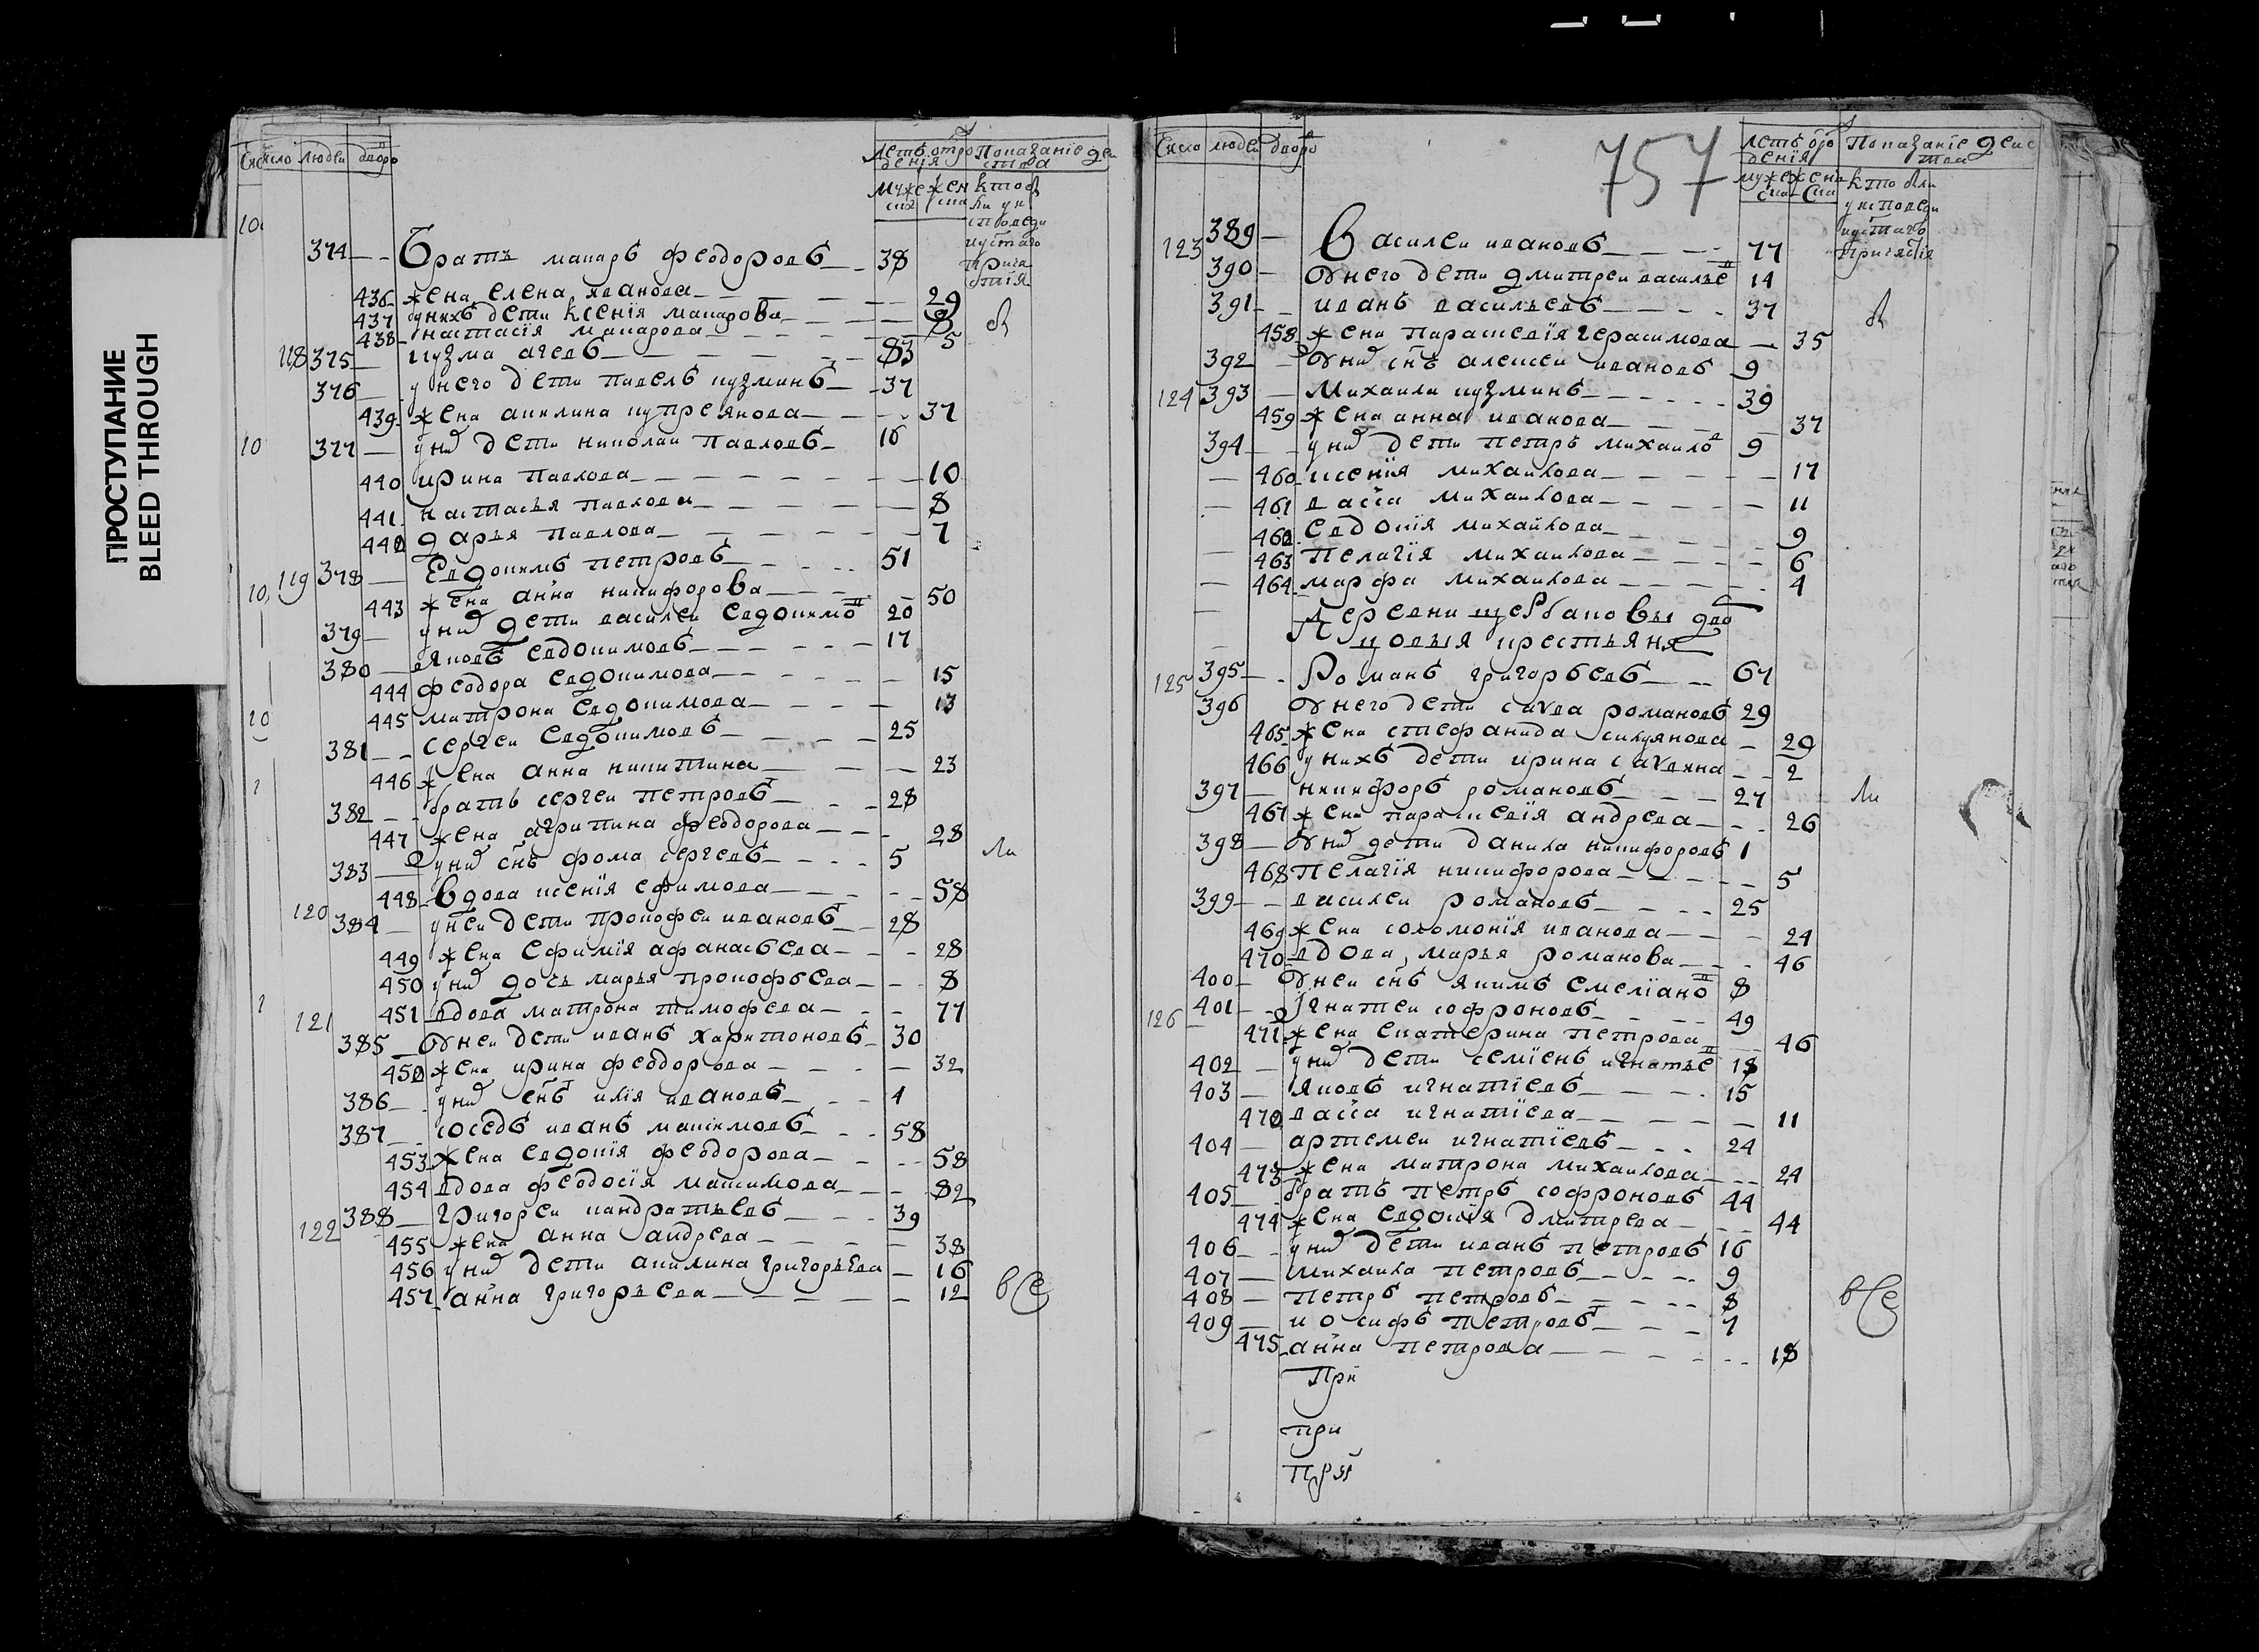 ПРОСТУПАНИЕ
BLEED THROUGH
Число людеи дворо
Летъ отро Показанiе деи
денiя ства
муже жен кто б
ска ли у и
споведи
и стаго
прича
стiя
374 Братъ макаръ феодоровъ 38
436 жена елена иванова 29
437 у нихъ дети ксенiя макарова 8
438 настасiя макарова 5
118 375 кузма агеевъ 83
376 у него дети павелъ кузминъ 37
439 жена акилина купреянова 37
377 у ни дети николаи павловъ 16
440 ирина павлова 10
441 настасья павлова 8
442 дарья павлова 7
119 378 Евдокимъ петровъ 51
443 жена анна никифорова 50
379 у ни дети василеи евдокимо 20
380 яковъ евдокимовъ 17
444 феодора евдокимова 15
445 матрона евдокимова 13
381 сергеи евдокимовъ 25
446 жена анна никитина 23
382 братъ сергеи петровъ 28
447 жена агрипина феодорова 28
383 у ни снъ фома сергеевъ 5
120 448 вдова ксенiя ефимова 58
384 у неи дети прокофеи ивановъ 28
449 жена ефимiя афанасьева 28
450 у ни дочь марья прокофьева 8
121 451 вдова матрона тимофеева 77
385 У неи дети иванъ харитоновъ 30
452 жена ирина феодорова 32
386 у ни снъ илiя ивановъ 4
387 соседъ иванъ максимовъ 58
453 жена евдокiя феодорова 58
454 вдова феодосiя максимова 82
122 388 григореи кандратьевъ 39
455 жена анна андреева 38
456 у ни дети акилина григорьева 16
457 анна григорьева 12
все
757
Число людеи дворо
Летъ о ро Показанiе деис
денiя тва
муже жена кто бли
ска ска у исповеди
и стаго
причастiя
123 389 Василеи ивановъ 77
390 У него дети дмитреи василье 14
391 иванъ васильевъ 37
458 жена парасковiя герасимова 35
392 У ни снъ алексеи ивановъ 9
124 393 Михаила кузминъ 39
459 жена анна иванова 37
394 у ни дети петръ михаило 9
460 ксенiя михаилова 17
461 васса михаилова 11
462 евдокiя михаилова 9
463 пелагiя михаилова 6
464 марфа михаилова 4
Деревни щербаковы два
цовыя крестьяня
125 395 Романъ григорьевъ 67
396 У него дети савва романовъ 29
465 жена стефанида силуянова 29
466 у нихъ дети ирина саввина 2
397 никифоръ романовъ 27
ли
467 жена парасковiя андреева 26
398 У ни дети данила никифоровъ 1
468 пелагiя никифорова 5
399 василеи романовъ 25
469 жена соломонiя иванова 24
470 вдова марья романова 46
400 У неи снъ якимъ емелiано 8
126 401 Игнатеи софроновъ 49
471 жена екатерина петрова 46
402 у ни дети семiенъ игнатье 18
403 яковъ игнатiевъ 15
472 васса игнатiева 11
404 артемеи игнатiевъ 24
473 жена матрона михаилова 24
405 братъ петръ софроновъ 44
474 жена евдокiя дмитреева 44
406 у ни дети иванъ петровъ 16
407 михаила петровъ 9
408 петръ петровъ 8
409 иосифъ петровъ 7
475 анна петрова 18
все
При
при
прiи